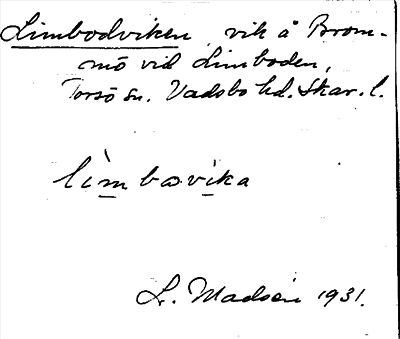 Limbodviken, vik å Brom-
mö vid Limboden,
Torsö sn. Vadsbo hd. Skar. l.
lìmbavika
L. Madsén 1931.